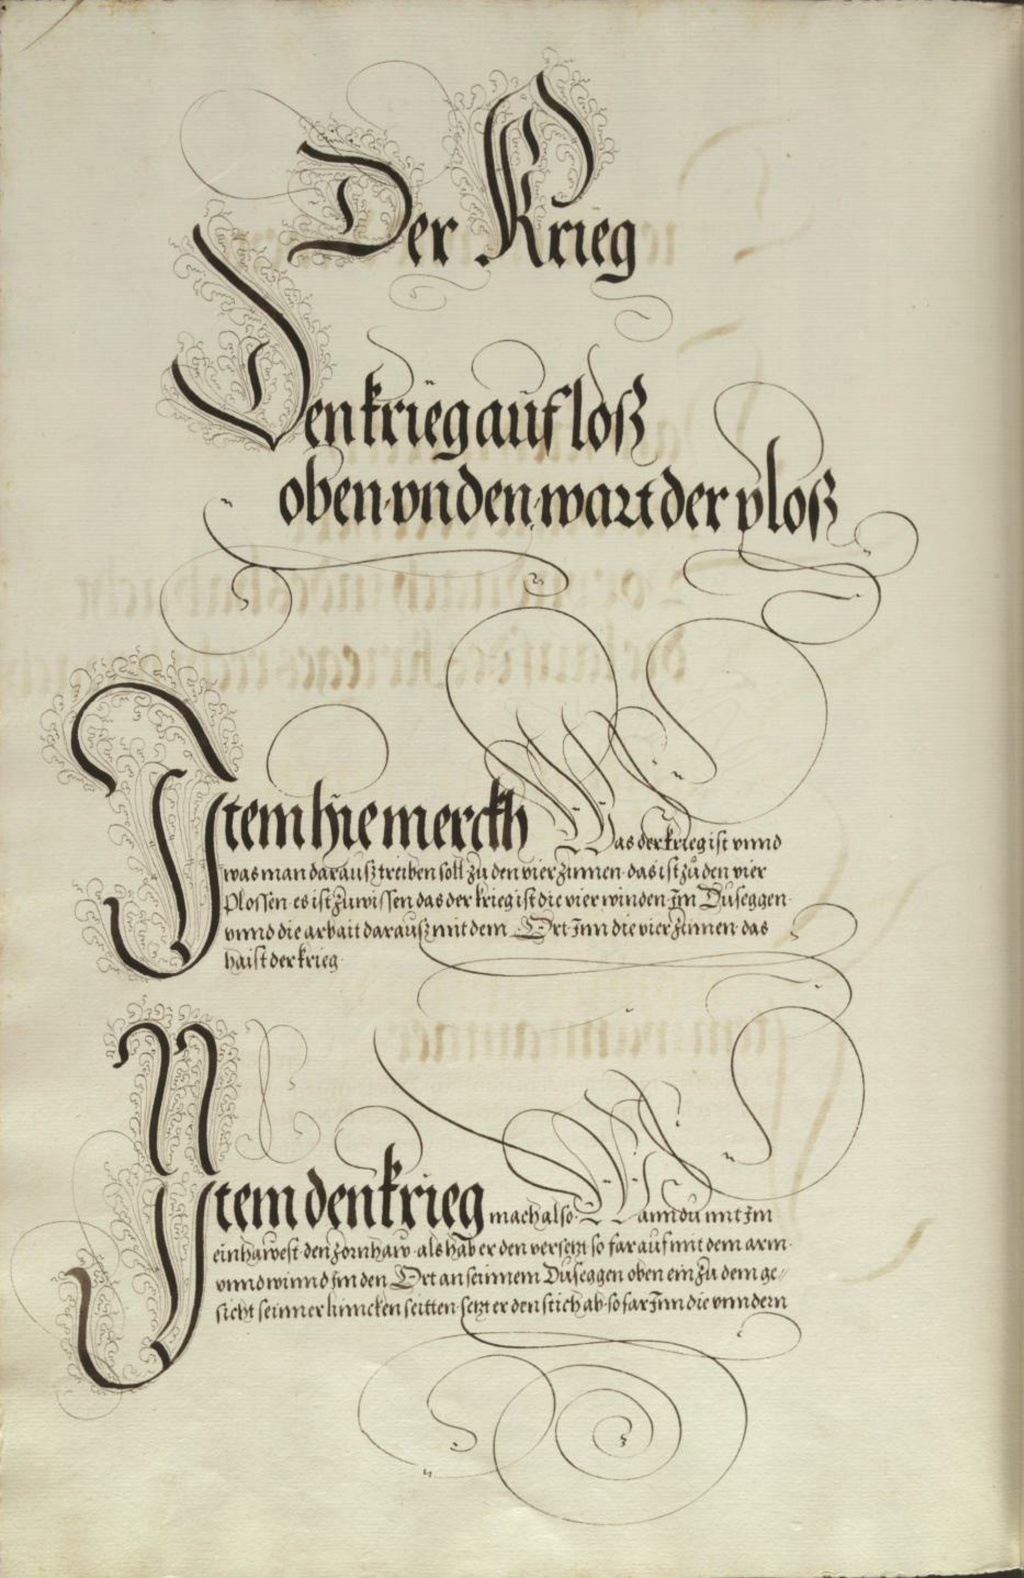 Der Krieg
Den krieg auf loß
oben vnden wart der ploß
Item hie merckh Was der krieg ist vnnd
was man darauß treiben soll zu den vier zinnen das ist zu den vier
Plossen es ist zu wissen das der krieg ist die vier winden Im Duseggen
vnnd die arbait darauß mit dem Ort Inn die vier zinnen das
haist der krieg
Item den krieg mach also Wann du mit Im
einhawest den zornhaw als hab er den versetzt so far auf mit dem arm
vnnd winnd im den Ort an seinnem Duseggen oben ein zu dem ge//
sicht seinner linncken seitten setzt er den stich ab so far Inn die vnndern